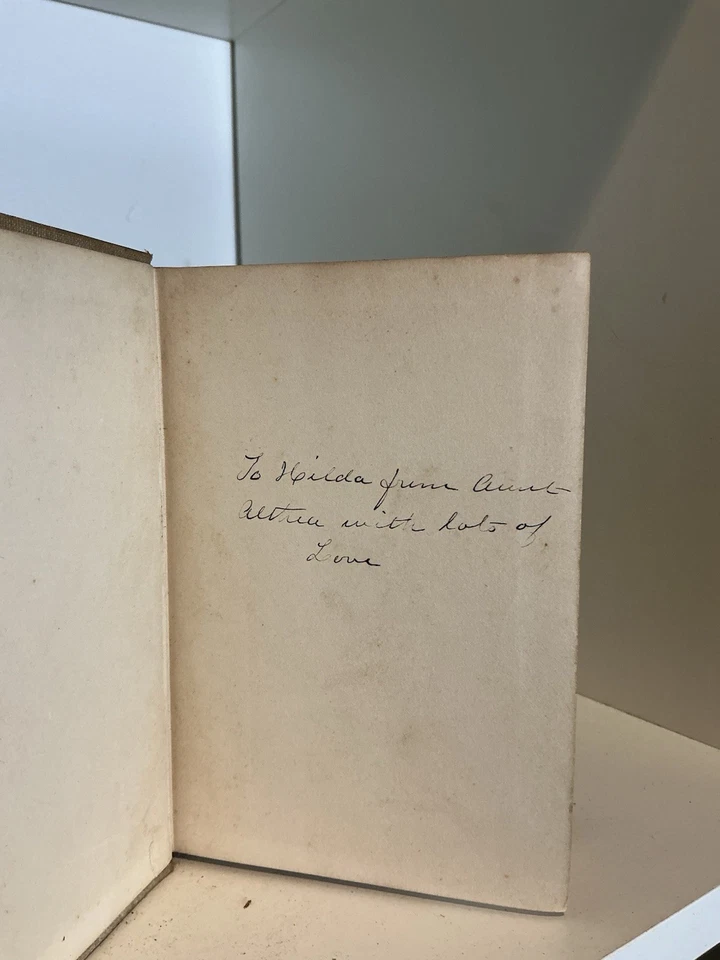 To Hilda from Aunt
Althea with lots of
Love